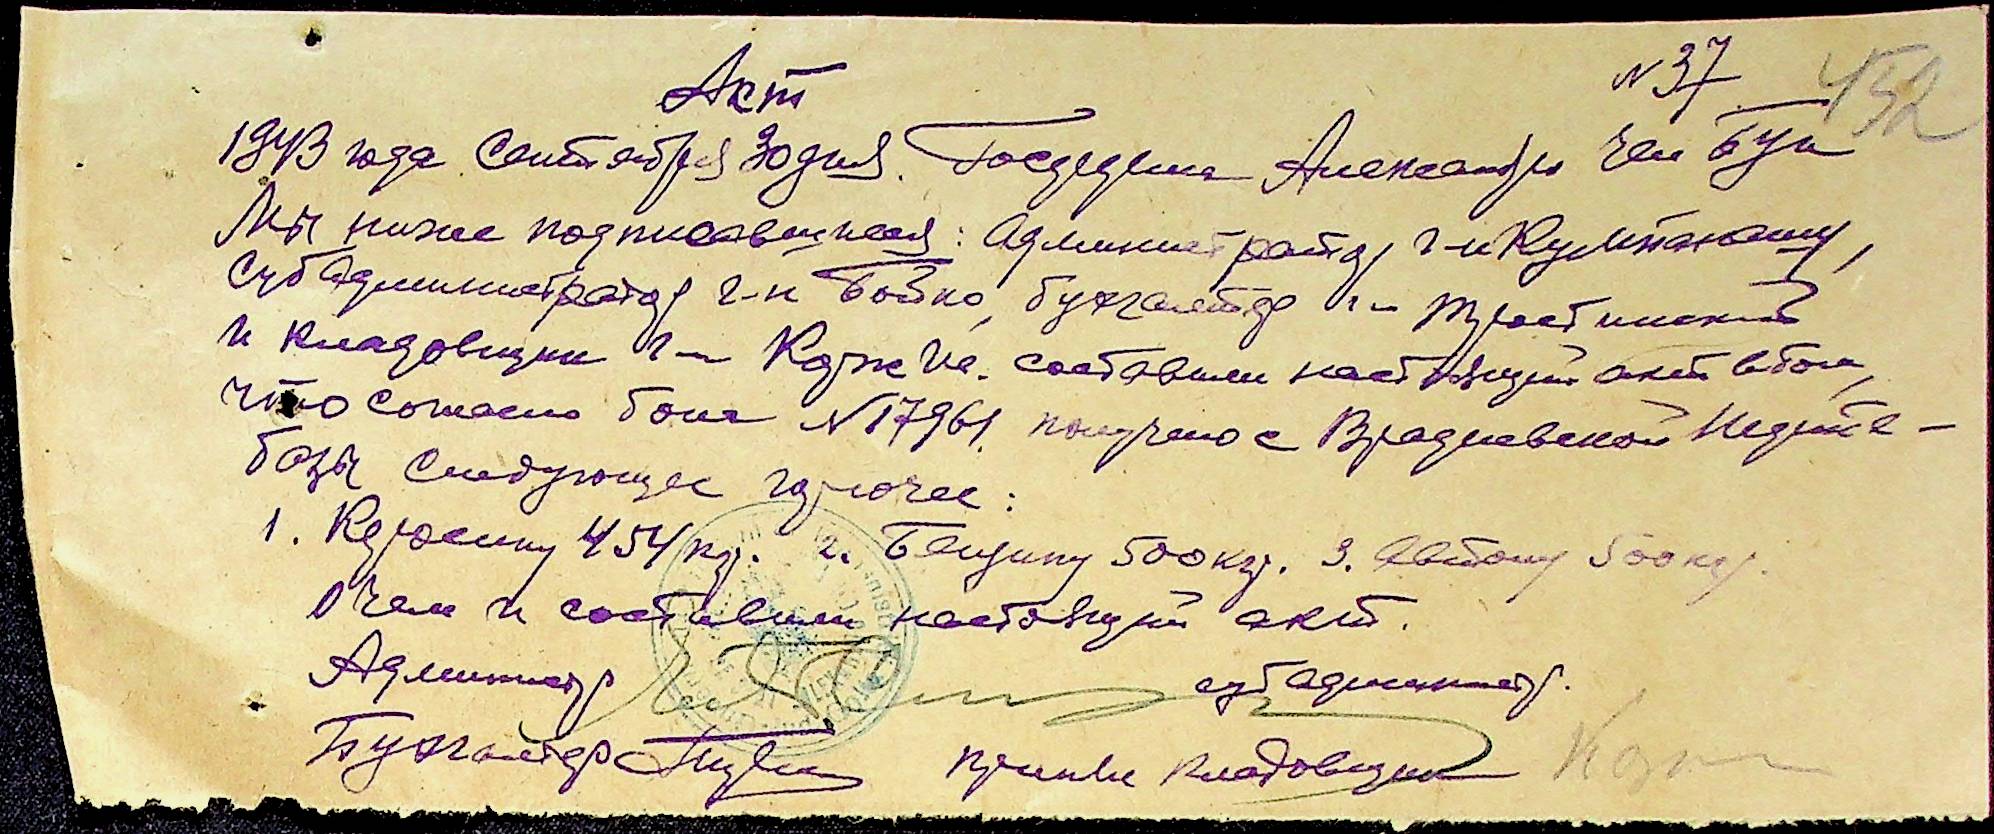 Акт
N 37
452
1943 года Сентября 30 дня. Госфедема Александр Чел Бун
Мы ниже подписавшиеся: Администратор г-н
субадминистратор г-н Бойко, бухгалтер г-н
и кладовщик г-н Коржик. составили настоящий акт в том,
что согласно бона N 17961. получено с Врадиевской Нефте-
базы следующее горючее:
1. Керосину 454 кгр. 2. Бензину 500 кгр. 3. Автолу 500 кгр.
О чем и составили настоящий акт.
Администр
субадминистр.
Бухгалтер
принял кладовщик